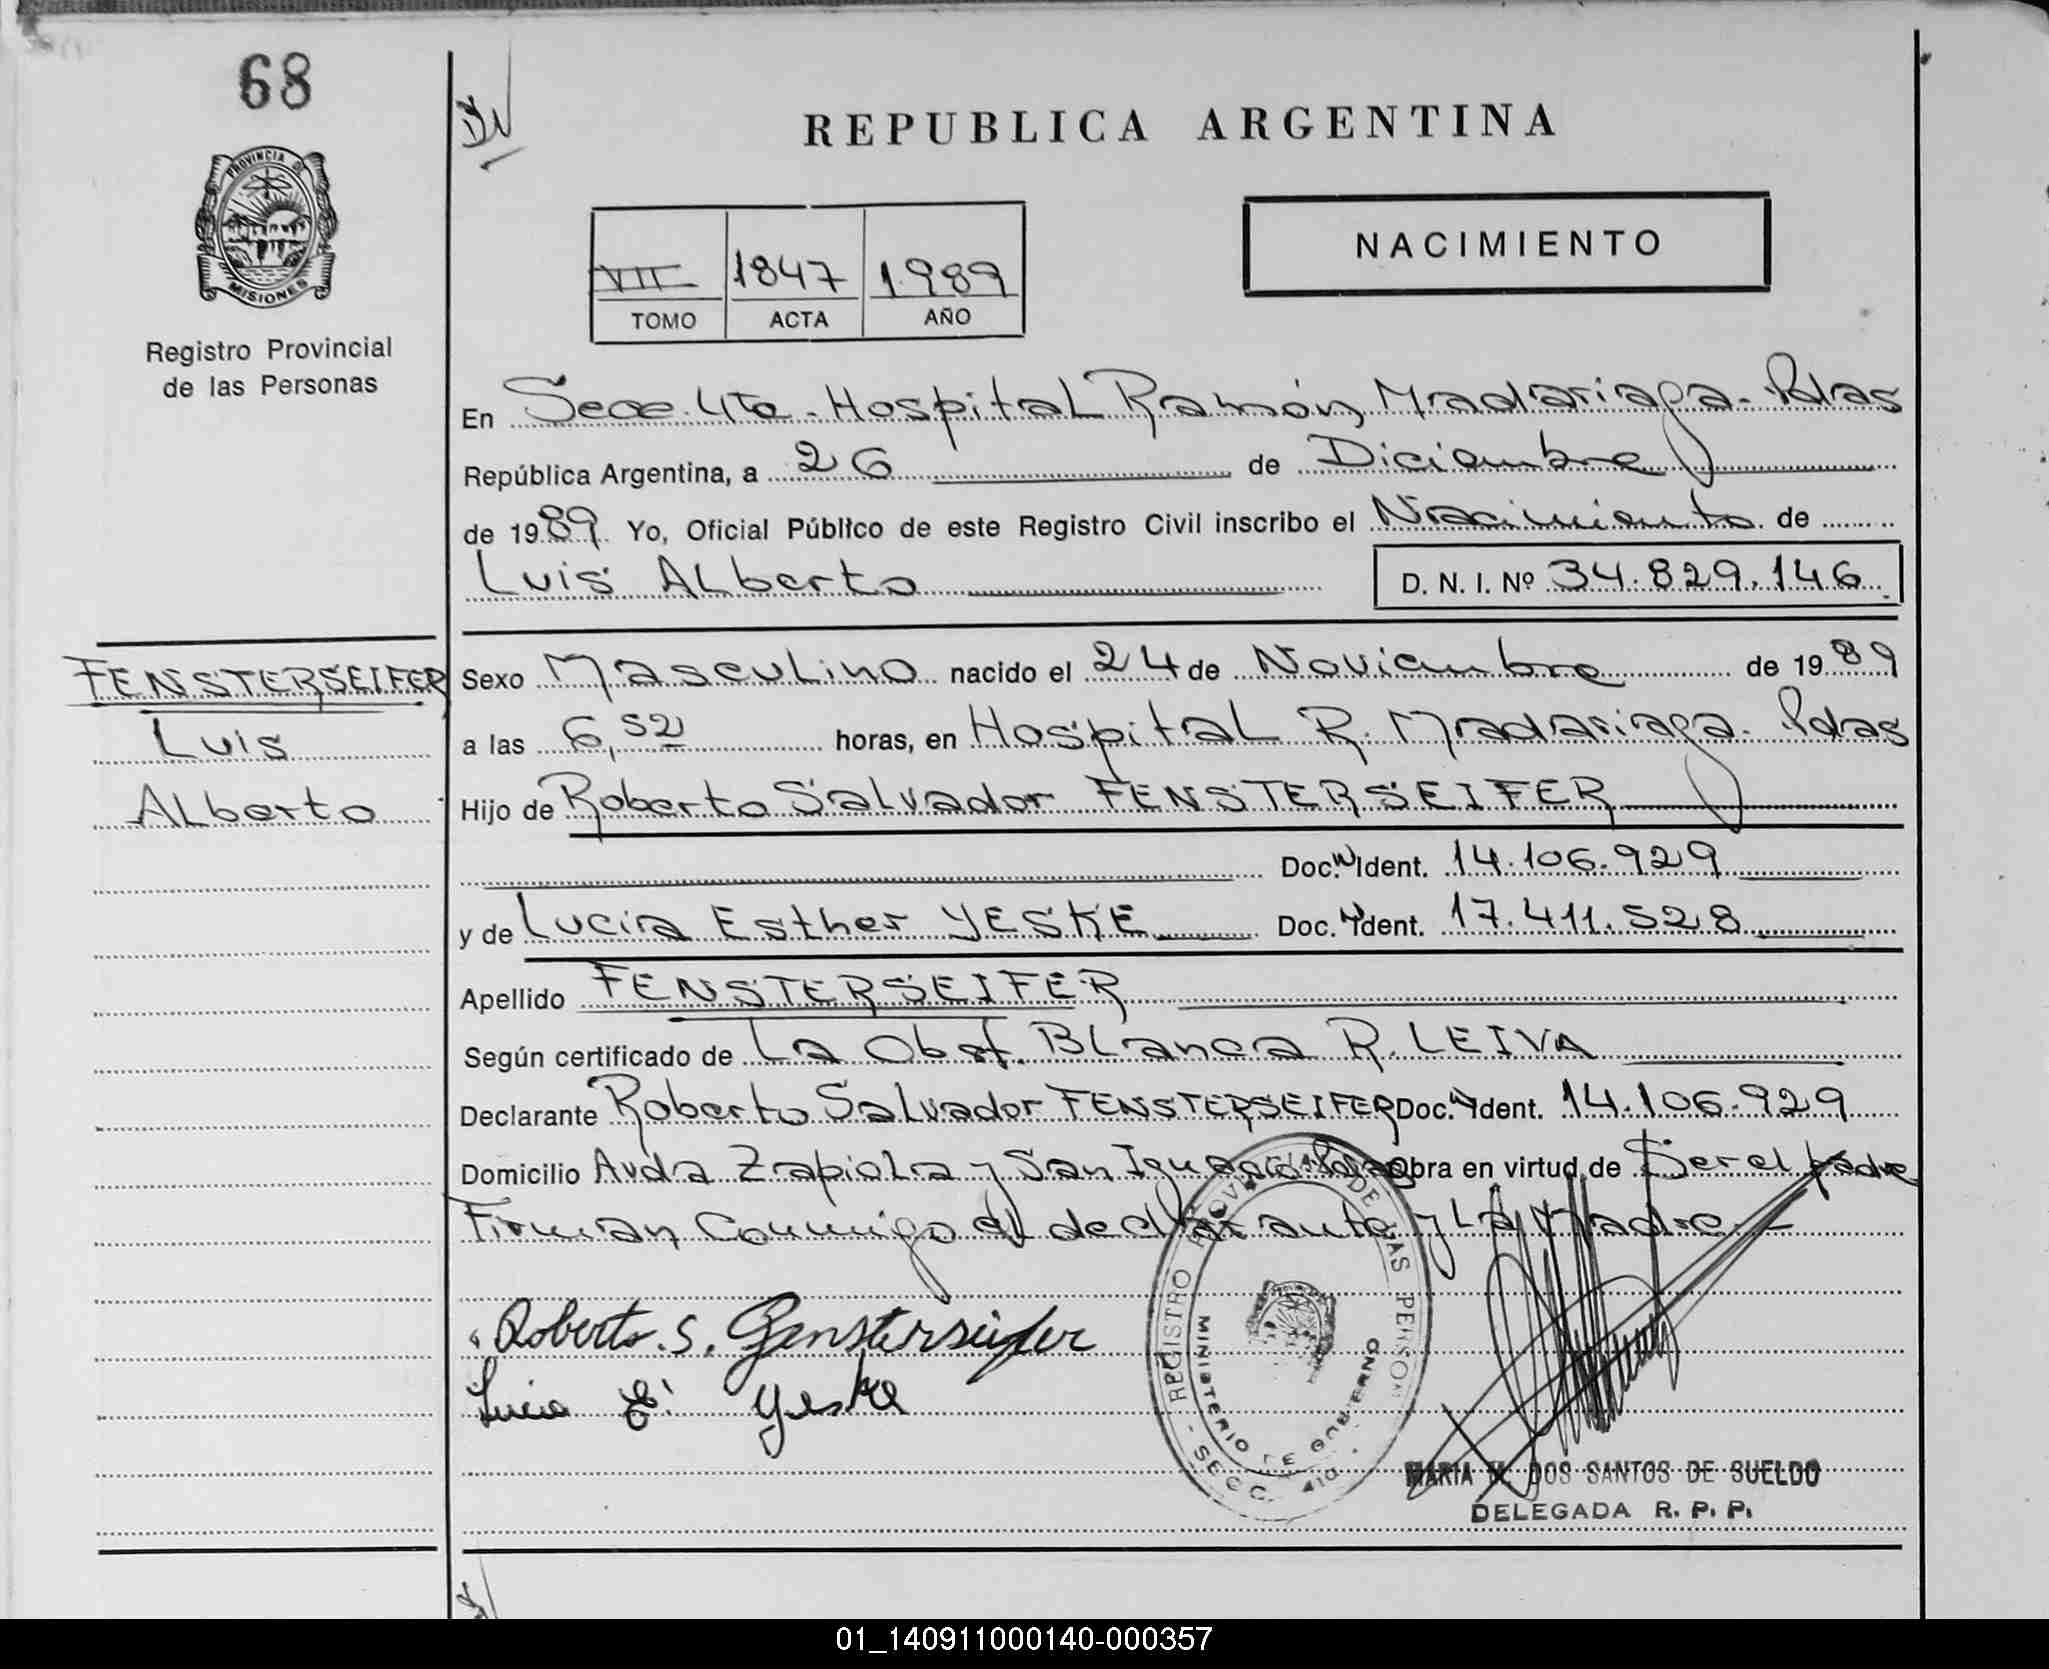 68
PROVINCIA DE
MISIONES
Registro Provincial
de las Personas
REPUBLICA ARGENTINA
NACIMIENTO
VII 1847 1989
TOMO ACTA AÑO
En Secc. 4ta. Hospital Ramón Madariaga. Pdas
República Argentina, a 26 de Diciembre
de 1989 Yo, Oficial Público de este Registro Civil inscribo el Nacimiento de
Luis Alberto D. N. I. Nº 34.829.146
FENSTERSEIFER
Luis
Alberto
Sexo Masculino nacido el 24 de Noviembre de 1989
a las 6,52 horas, en Hospital R. Madariaga. Pdas
Hijo de Roberto Salvador FENSTERSEIFER
Doc. Ident. 14.106.929
y de Lucia Esther YESKE Doc. Ident. 17.411.528
Apellido FENSTERSEIFER
Según certificado de La Obst. Blanca R. LEIVA
Declarante Roberto Salvador FENSTERSEIFER Doc. Ident. 14.106.929
Domicilio Avda Zapiola y San Ignacio Pdas Obra en virtud de Ser el padre
Firman Conmigo el declarante y La Madre.-
Roberto. S. Fensterseifer
Lucia E. Yeske
REGISTRO PROVINCIAL DE LAS PERSONAS
MINISTERIO DE GOBIERNO
- SECC. 4ta. -
MARIA DOS SANTOS DE SUELDO
DELEGADA R. P. P.
01_140911000140-000357